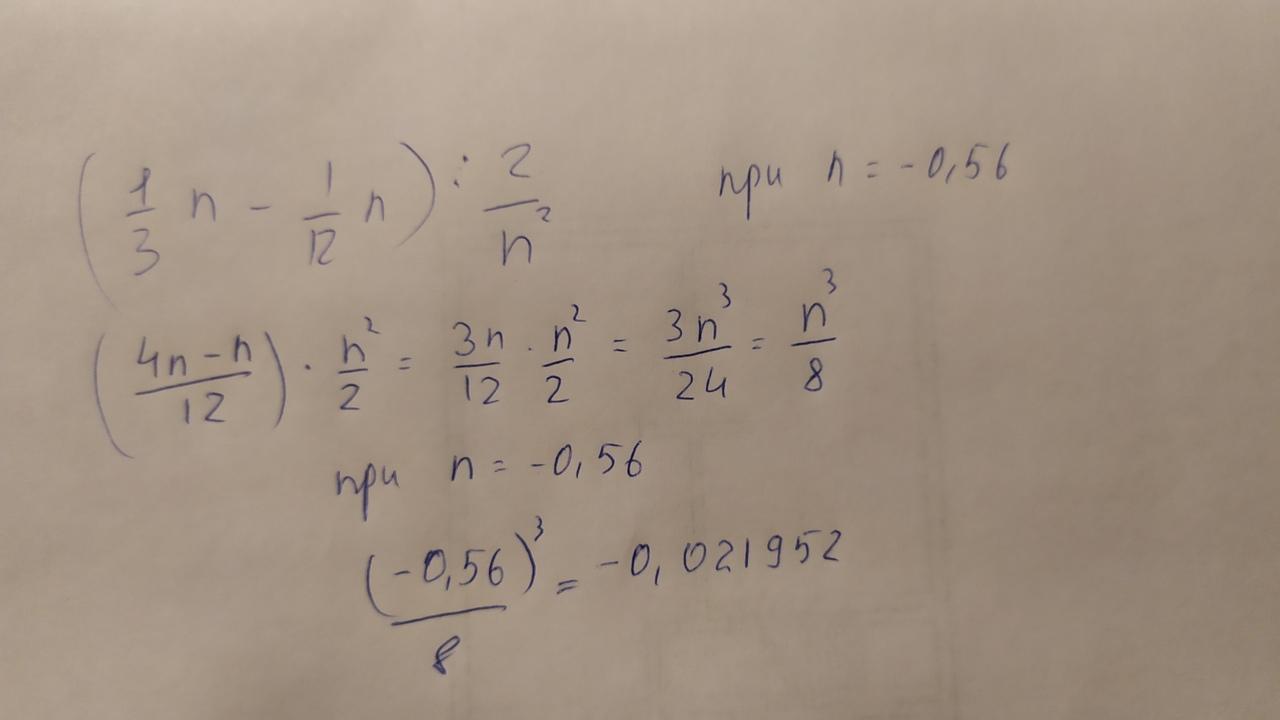 (1/3 n - 1/12 n) : 2/n² при n = -0,56
((4n - n)/12) · n²/2 = 3n/12 · n²/2 = 3n³/24 = n³/8
при n = -0,56
(-0,56)³/8 = -0,021952